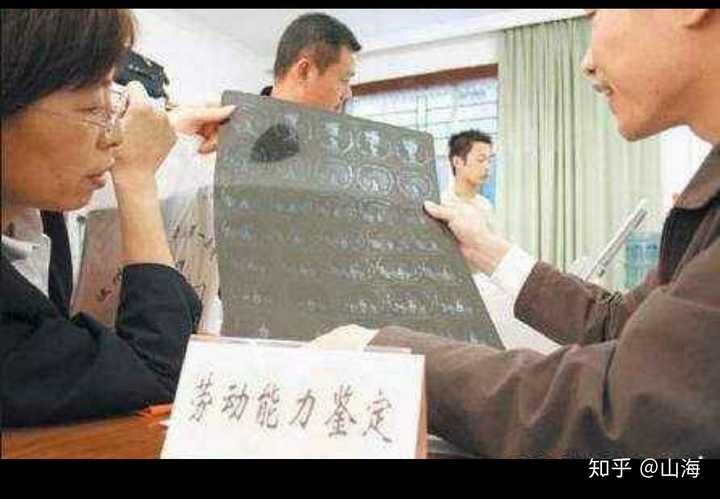 劳动能力鉴定
知乎 @山海